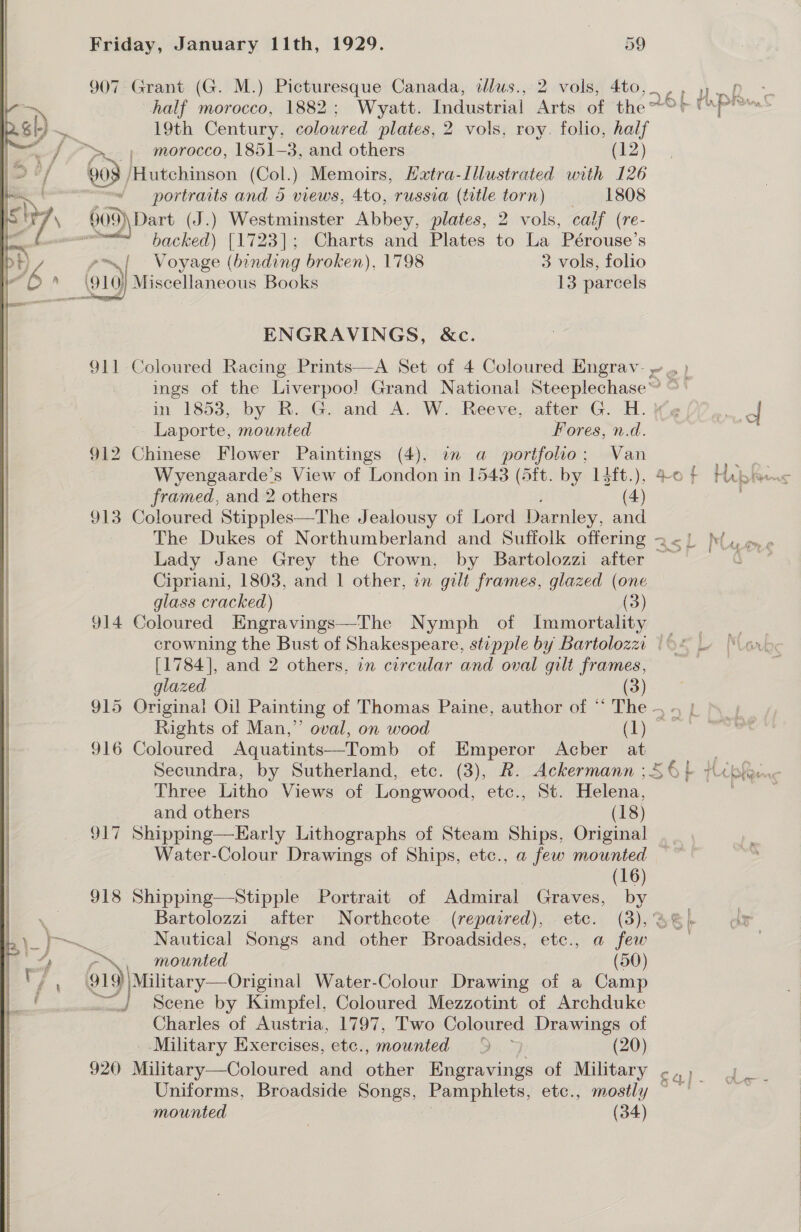 Friday, January 11th, 1929. 59
907 Grant (G. M.) Picturesque Canada, illus., 2 vols, 4to,
half morocco, 1882; Wyatt. Industrial Arts of the
19th Century, coloured plates, 2 vols, roy. folio, half
morocco, 1851-3, and others (12)
908 Hutchinson (Col.) Memoirs, Extra-Illustrated with 126
portraits and 5 views, 4to, russia (title torn) 1808
909 Dart (J.) Westminster Abbey, plates, 2 vols, calf (re-
backed) [1723]; Charts and Plates to La Pérouse's
Voyage (binding broken), 1798 3 vols, folio
910 Miscellaneous Books 13 parcels
ENGRAVINGS, &c.
911 Coloured Racing Prints—A Set of 4 Coloured Engrav-
ings of the Liverpool Grand National Steeplechase
in 1853, by R. G. and A. W. Reeve, after G. H.
Laporte, mounted Fores, n.d.
912 Chinese Flower Paintings (4), in a portfolio; Van
Wyengaarde's View of London in 1543 (5ft. by 1½ft.),
framed, and 2 others (4)
913 Coloured Stipples—The Jealousy of Lord Darnley, and
The Dukes of Northumberland and Suffolk offering
Lady Jane Grey the Crown, by Bartolozzi after
Cipriani, 1803, and 1 other, in gilt frames, glazed (one
glass cracked) (3)
914 Coloured Engravings—The Nymph of Immortality
crowning the Bust of Shakespeare, stipple by Bartolozzi
[1784], and 2 others, in circular and oval gilt frames,
glazed (3)
915 Original Oil Painting of Thomas Paine, author of “The
Rights of Man,” oval, on wood (1)
916 Coloured Aquatints—Tomb of Emperor Acber at
Secundra, by Sutherland, etc. (3), R. Ackermann;
Three Litho Views of Longwood, etc., St. Helena,
and others (18)
917 Shipping—Early Lithographs of Steam Ships, Original
Water-Colour Drawings of Ships, etc., a few mounted
(16)
918 Shipping—Stipple Portrait of Admiral Graves, by
Bartolozzi after Northcote (repaired), etc. (3),
Nautical Songs and other Broadsides, etc., a few
mounted (50)
919 Military—Original Water-Colour Drawing of a Camp
Scene by Kimpfel, Coloured Mezzotint of Archduke
Charles of Austria, 1797, Two Coloured Drawings of
Military Exercises, etc., mounted (20)
920 Military—Coloured and other Engravings of Military
Uniforms, Broadside Songs, Pamphlets, etc., mostly
mounted (34)